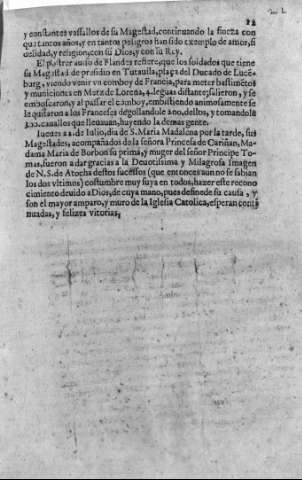 12
y constantes vassallos de su Magestad, continuando la fineza con
que tantos años, y en tantos peligros han sido exemplo de amor, fi
delidad, y religion, con su Dios, y con su Rey.
El postrer auiso de Flandes refiere, que los soldados que tiene
su Magestad de presidio en Tutauila, plaça del Ducado de Lucē-
burg, viendo venir vn comboy de Francia, para meter bastimētos
y municiones en Metz de Lorena, 4. leguas distante, salieron, y se
emboscaron, y al passar el comboy, embistiendo animosamente se
le quitaron a los Franceses degollandole 200. dellos, y tomandole
200. cauallos que lleauan, huyendo la demas gente.
Iueues 22. de Iulio, dia de S. Maria Madalena por la tarde, sus
Magestades, acompañados de la señora Princesa de Cariñan, Ma-
dama Maria de Borbon su prima, y muger del señor Principe To-
mas, fueron a dar gracias a la Deuotissima y Milagrosa Imagen
de N. S. de Atocha destos sucessos (que entonces aun no se sabian
los dos vltimos) costumbre muy suya en todos, hazer este recono
cimiento deuido a Dios, de cuya mano, pues defiende su causa, y
son el mayor amparo, y muro de la Iglesia Catolica, esperan conti
nuadas, y felizes vitorias.